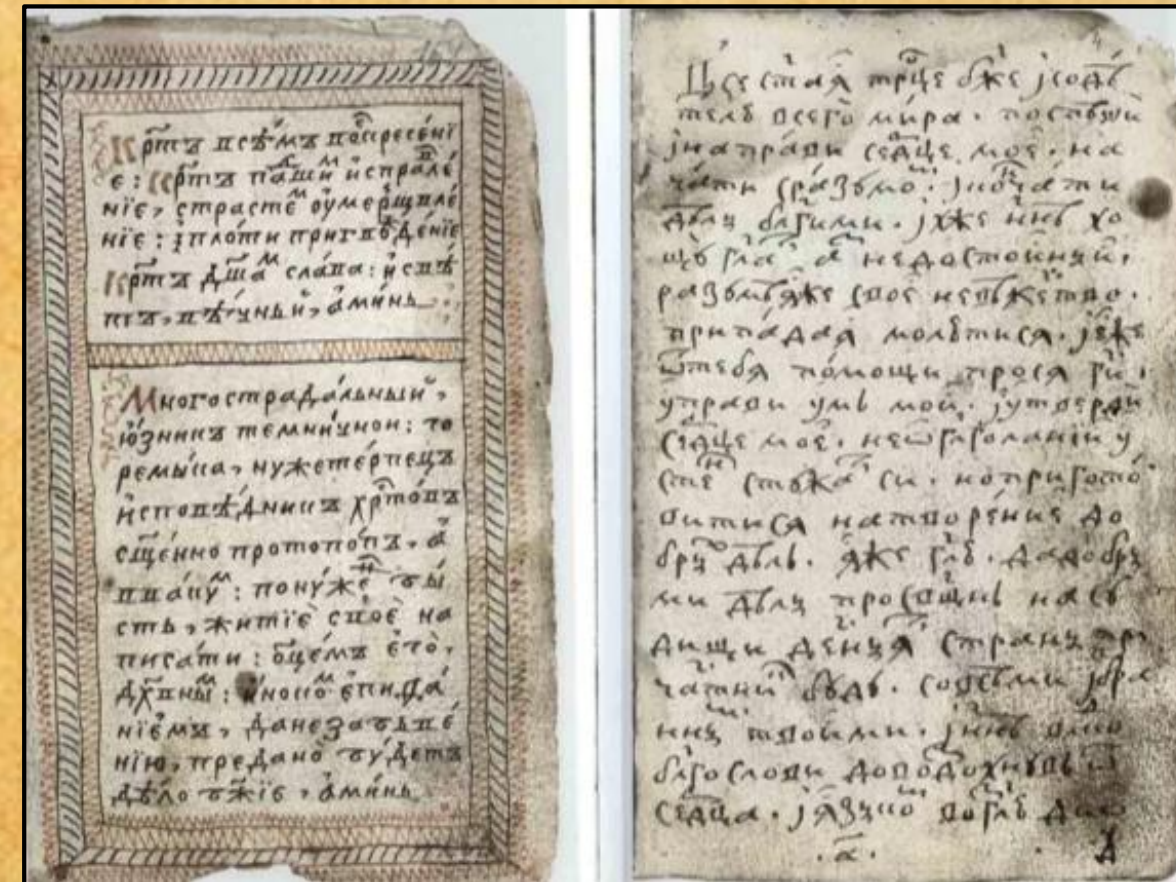 Крⷭ҇тъ всѣ́мъ воскресе́нї
е: крⷭ҇тъ па́дшиⷨ и҆справле́
нїе, страсте́ⷨ оу҆мерщвле́
нїе: і҆ пло́ти пригвожде́нїе
крⷭ҇тъ дш҃аⷨ сла́ва: и҆ свѣ́
тъ, вѣ́чный, а҆ми́нь
Многострада́льный,
ю҆́зникъ темни́чной: го
ремы́ка, нужете́рпецъ
и҆сповѣ́дникъ хрⷭ҇товъ
сщ҃е́нно протопо́пъ, а҆
ввакуⷨ: понуже́ⷩ бы́
сть, житїѐ своѐ на
писа́ти: ѻ҆ц҃емъ е҆го̀,
дх҃о́вныⷨ: и҆́нокоⷨ е҆пифа́
нїемъ, да не забве́
нїю, предано̀ бу́детъ
дѣ́ло бж҃їе, а҆ми́нь
Всест҃аѧ трⷪ҇це бж҃е ісодѣ
телю всего̀ ми́ра. поспѣши
інапра́ви се́рⷣце моѐ. на
ча́ти сра́зумоⷨ. іконча́ти
дѣлы блг҃ими. іже нн҃ѣ хо
щꙋ гл҃аⷮ аⷥ недосто́йный.
разꙋмѣ́ѧже своѐ невѣ́жество.
припа́даѧ молю́тисѧ. іе́же
ѿтебѧ по́мощи просѧ гⷭ҇и.
ꙋправи ꙋмъ мой. іꙋтверди
се́рⷣце моѐ. неѡгл҃голаніи ꙋ
стеⷩ стꙋжаⷮ си. но пригото́
витисѧ натворе́ние до
брыⷯ дѣлъ. ꙗже гл҃ю. дадобры
ми дѣлы просвѣщеⷩ насꙋ
дищи деснꙑѧ стране при
частниⷦ бꙋдꙋ. совсѣми ізбра
нны твоими. інн҃ѣ влⷣко
блг҃ослови давоздохнꙋвъ ѿ
се́рⷣца. іѧзыкоⷨ возгл҃ю дио
.а҃.